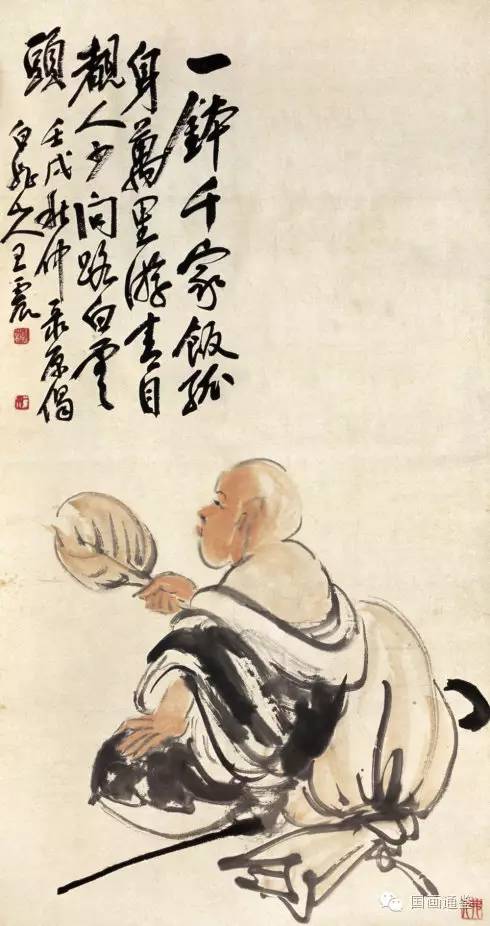 一鉢千家飯孤
身萬里游青目
覩人少問路白雲
頭
壬戌秋仲录原偈
白龍山人王震
国画通鉴